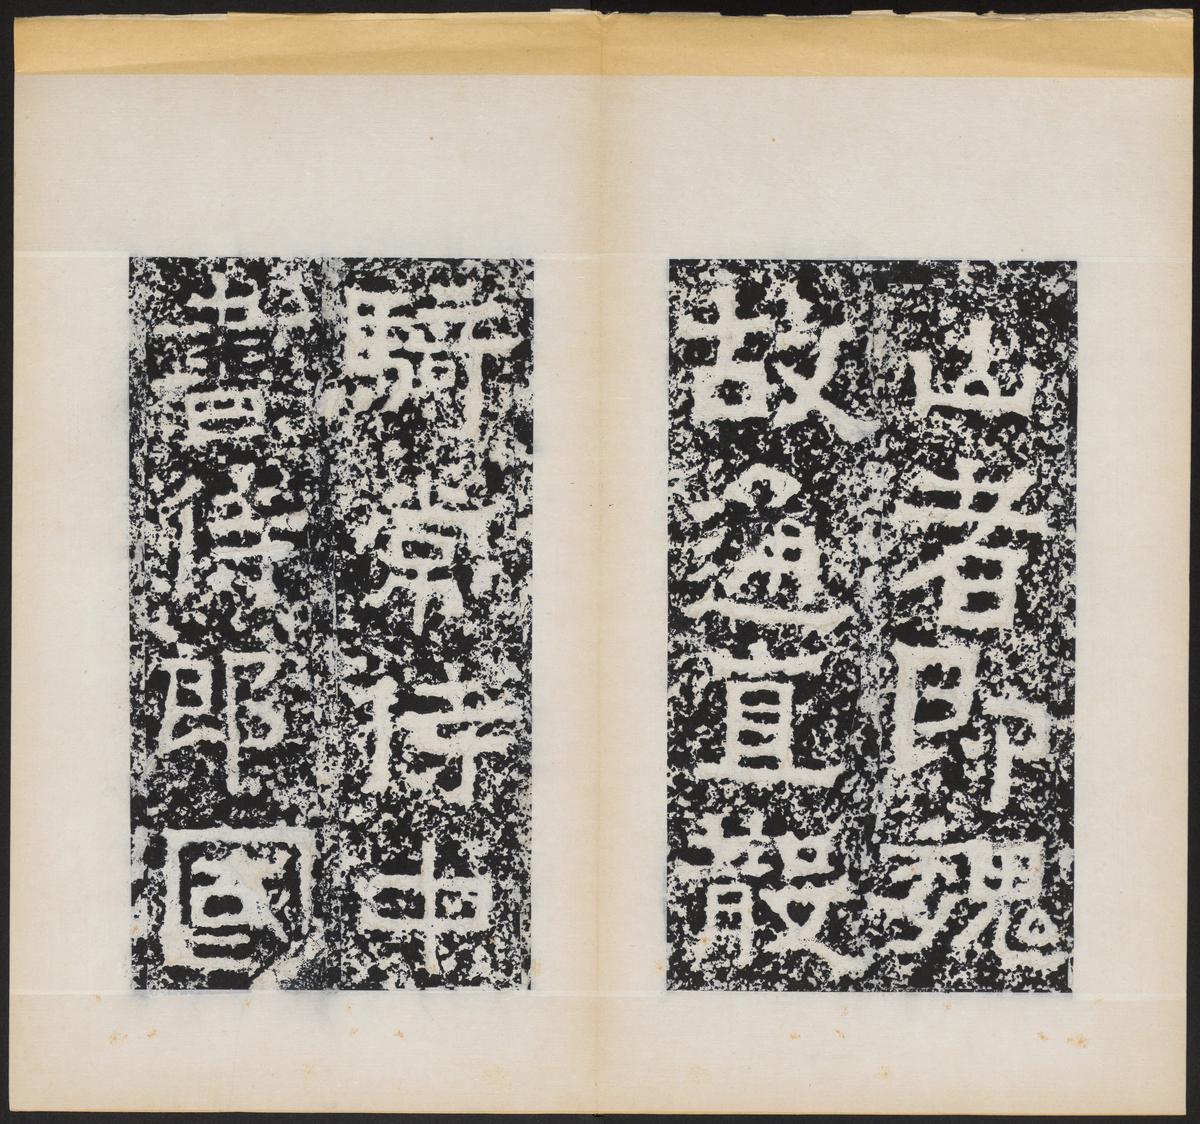 山者即魏
故通直散
騎常侍中
書侍郎國